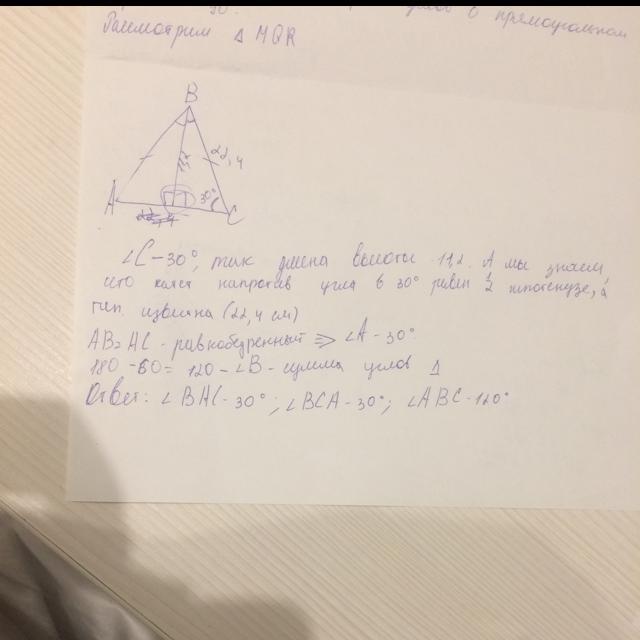 в прямоугольном
Рассмотрим Δ MQR
B
22,4
A
30°
C
∠C - 30°, так длина высоты 11,2. А мы знаем,
что катет напротив угла в 30° равен 1/2 гипотенузе, а
гип. известна (22,4 см)
AB = AC - равнобедренный => ∠A - 30°
180 - 60 = 120 - ∠B - сумма углов Δ
Ответ: ∠BAC - 30°; ∠BCA - 30°; ∠ABC - 120°